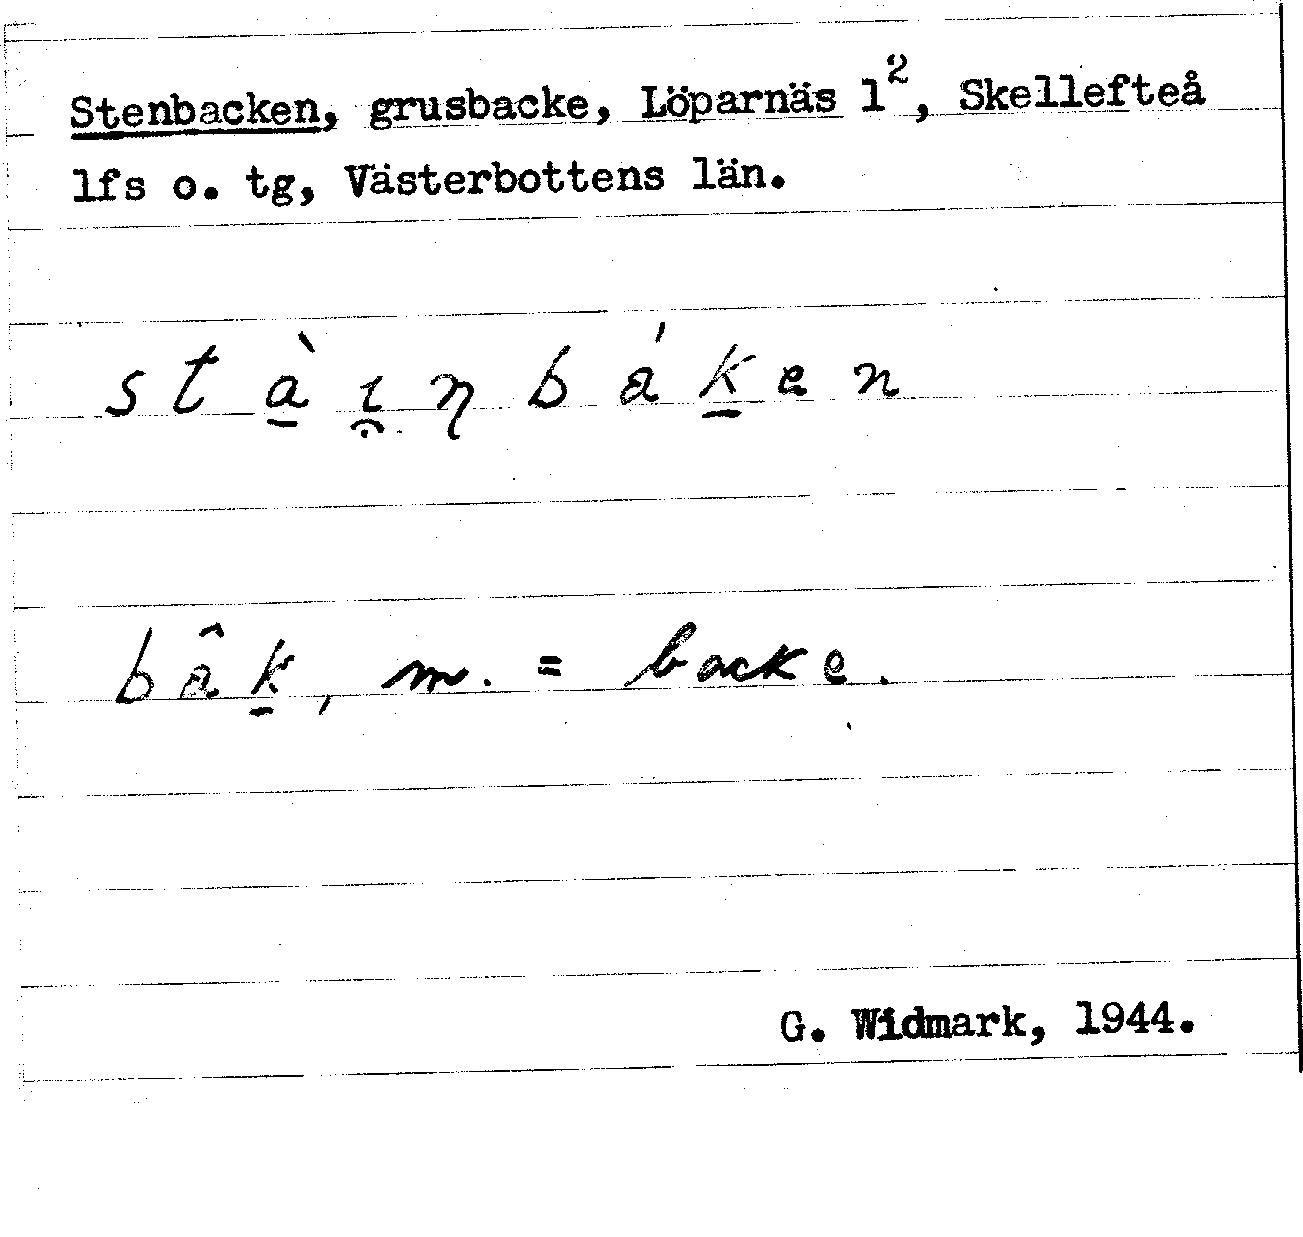 Stenbacken, grusbacke, Löparnäs 1², Skellefteå
lfs o. tg, Västerbottens län.
stà̠ɩ̯ŋbák̠en
bâk̠, m. = backe.
G. Widmark, 1944.